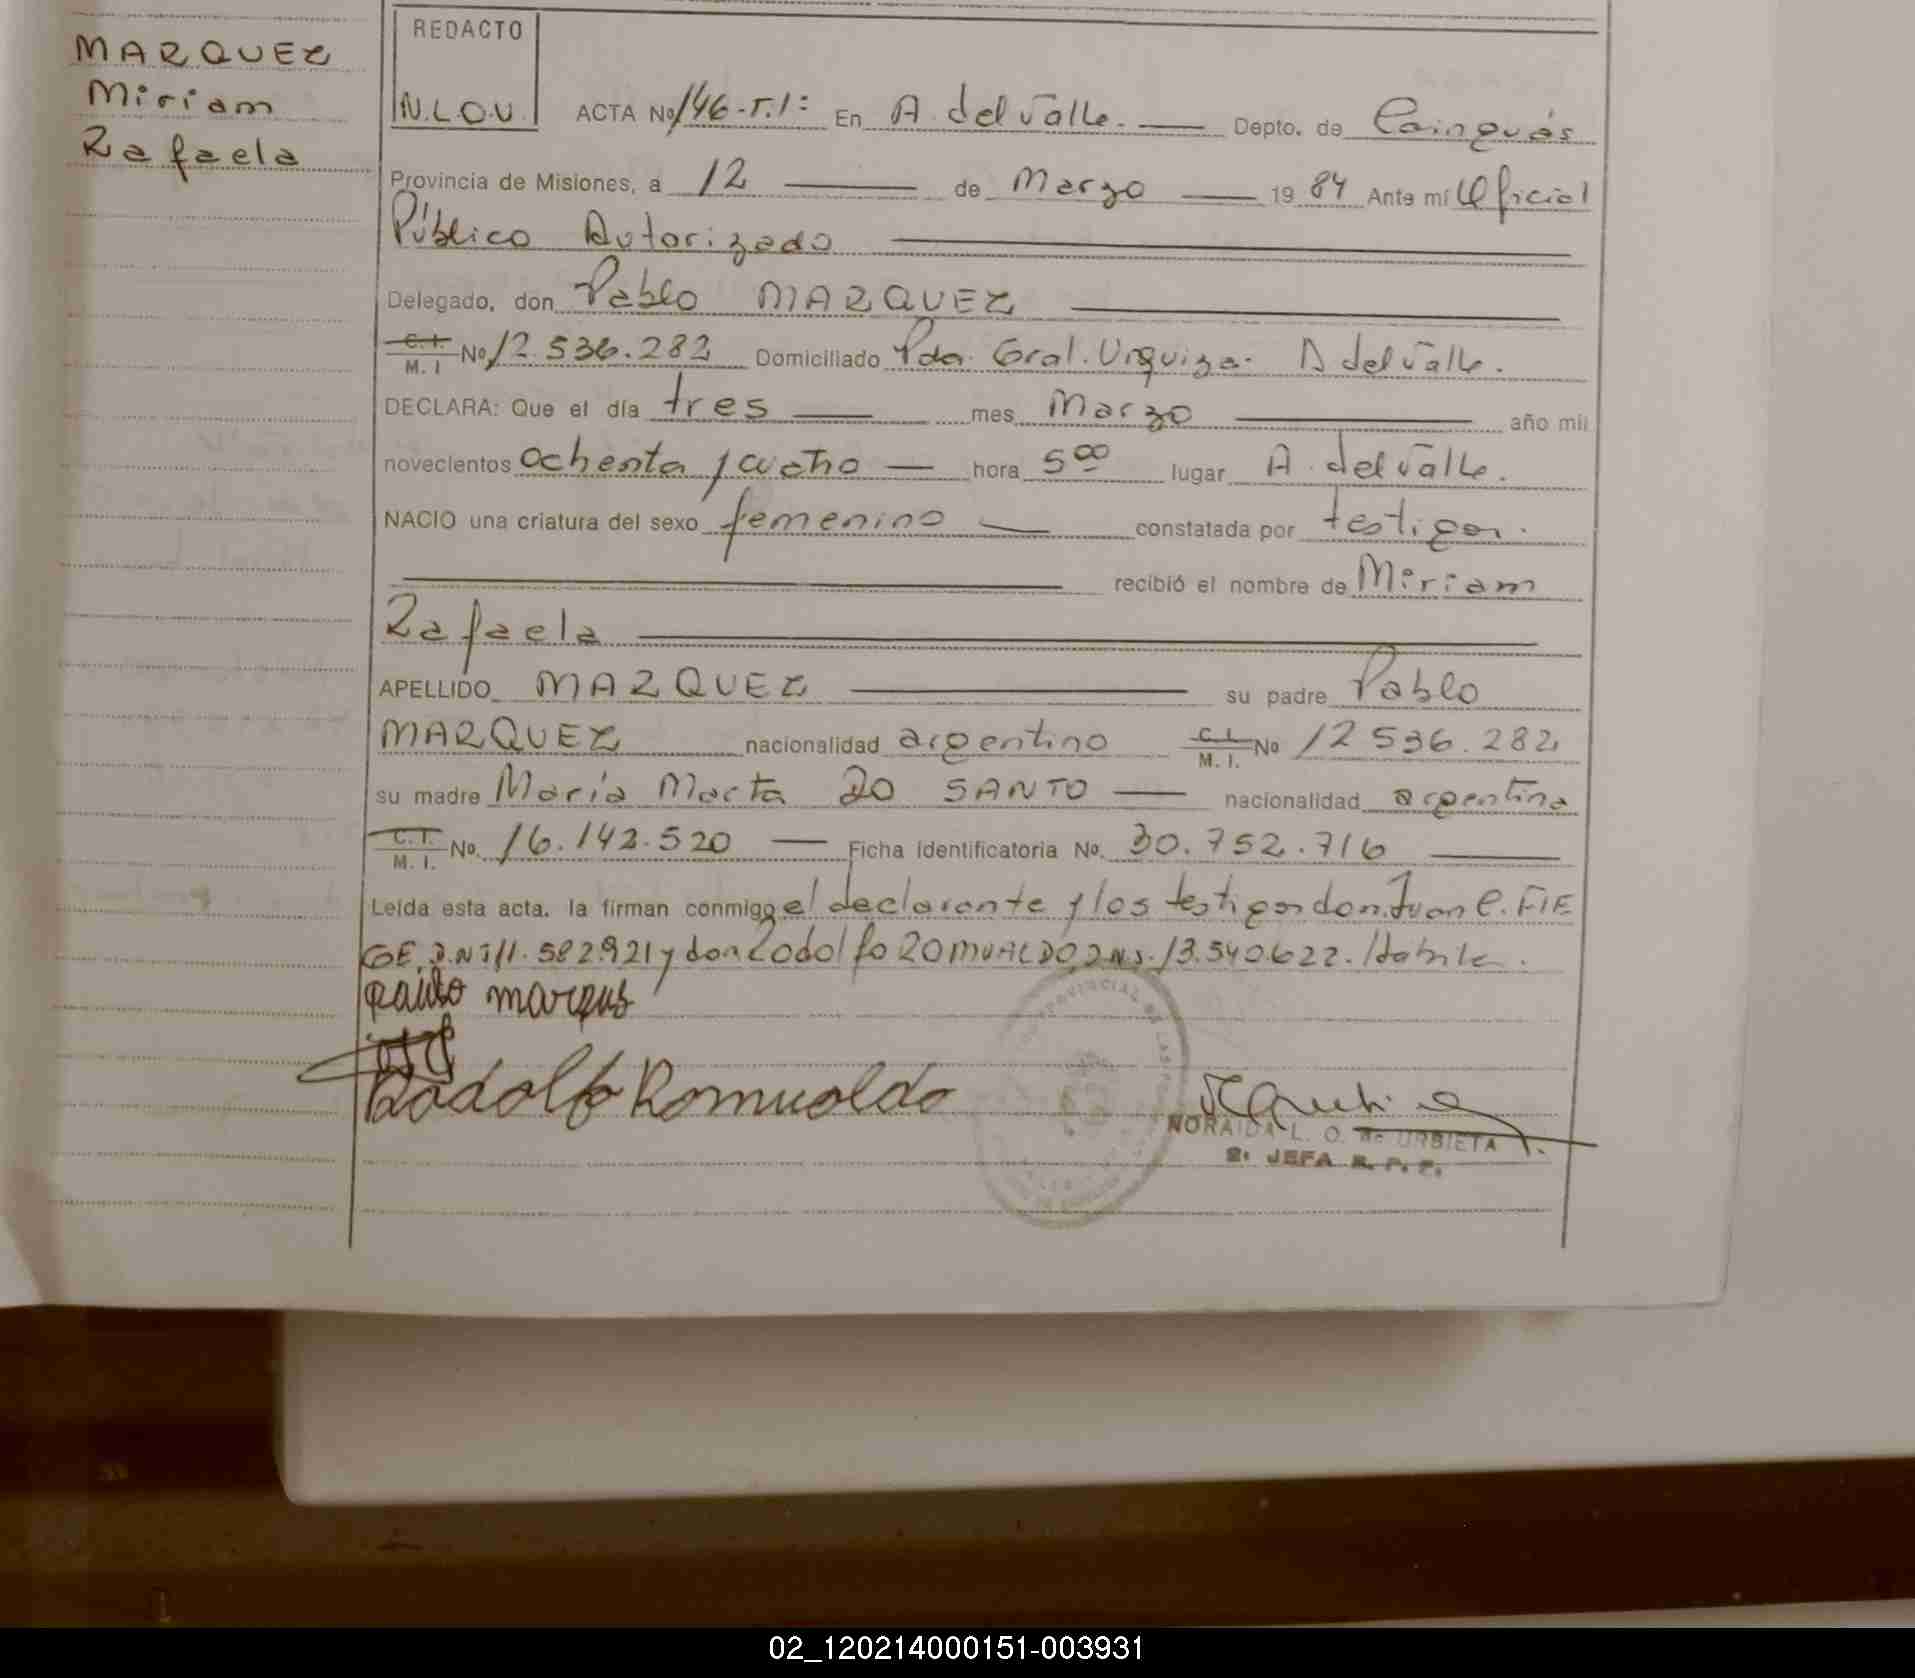 MARQUEZ
Miriam
Rafaela
REDACTO
N.L.O.U.
ACTA No 146-T.1: En A. del Valle. Depto. de Cainguás
Provincia de Misiones, a 12 de Marzo 1984 Ante mí Oficial
Público Autorizado
Delegado, don Pablo MARQUEZ
C.I. M.I No 12.536.282 Domiciliado Pda. Gral. Urquiza. A del Valle.
DECLARA: Que el día tres mes Marzo año mil
novecientos ochenta y cuatro hora 5 00 lugar A. del Valle.
NACIO una criatura del sexo femenino constatada por testigos.
recibió el nombre de Miriam
Rafaela
APELLIDO MARQUEZ su padre Pablo
MARQUEZ nacionalidad argentino C.I. M.I. No 12 536.282
su madre María Marta DO SANTO nacionalidad argentina
C.I. M.I. No. 16.142.520 Ficha identificatoria No. 30.752.716
Leída esta acta, la firman conmigo el declarante y los testigos don. Juan C. FIE
GE. D.N.I 11.582.921 y don Rodolfo ROMUALDO, D.N.I. 13.540.622. Habile.
Pablo marques
Rodolfo Romualdo
NORAIDA L. O. de URBIETA
2: JEFA R. P. P.
02_120214000151-003931